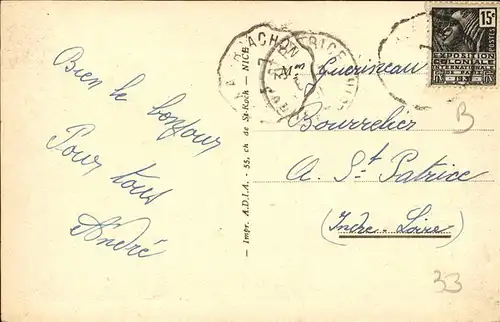 Bien le bonjour
Pour tous
André
Impr. A.D.I.A. - 55, ch de St-Roch - NICE
ARCACHON
15c
POSTES
EXPOSITION
COLONIALE
INTERNATIONALE
Mr Guerineau
Bourrelier
A. St Patrice
(Indre-Loire)
B
33